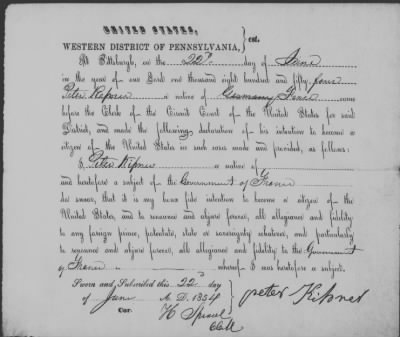 UNITED STATES,
WESTERN DISTRICT OF PENNSYLVANIA, } sct.
At Pittsburgh, on the 22d day of June
in the year of our Lord one thousand eight hundred and fifty four
Peter a native of Germany France came
before the Clerk of the Circuit Court of the United States for said
District, and made the following declaration of his intention to become a
citizen of the United States in such cases made and provided, as follows:
I, Peter a native of
and heretofore a subject of the Government of France
do swear, that it is my bona fide intention to become a citizen of the
United States, and to renounce and abjure forever, all allegiance and fidelity
to any foreign prince, potentate, state or sovereignty whatever, and particularly
to renounce and abjure forever, all allegiance and fidelity to the Government
of France whereof I was heretofore a subject.
Sworn and Subscribed this 22d day
of June A. D. 1854
peter
H
Clk